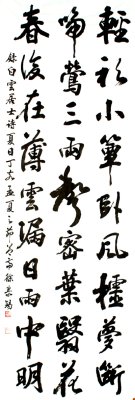 輕衫小簟臥風櫺夢斷
啼鶯三兩聲密葉翳花
春復在薄雲漏日雨中明
錄白雲居士詩夏日丁亥孟夏之